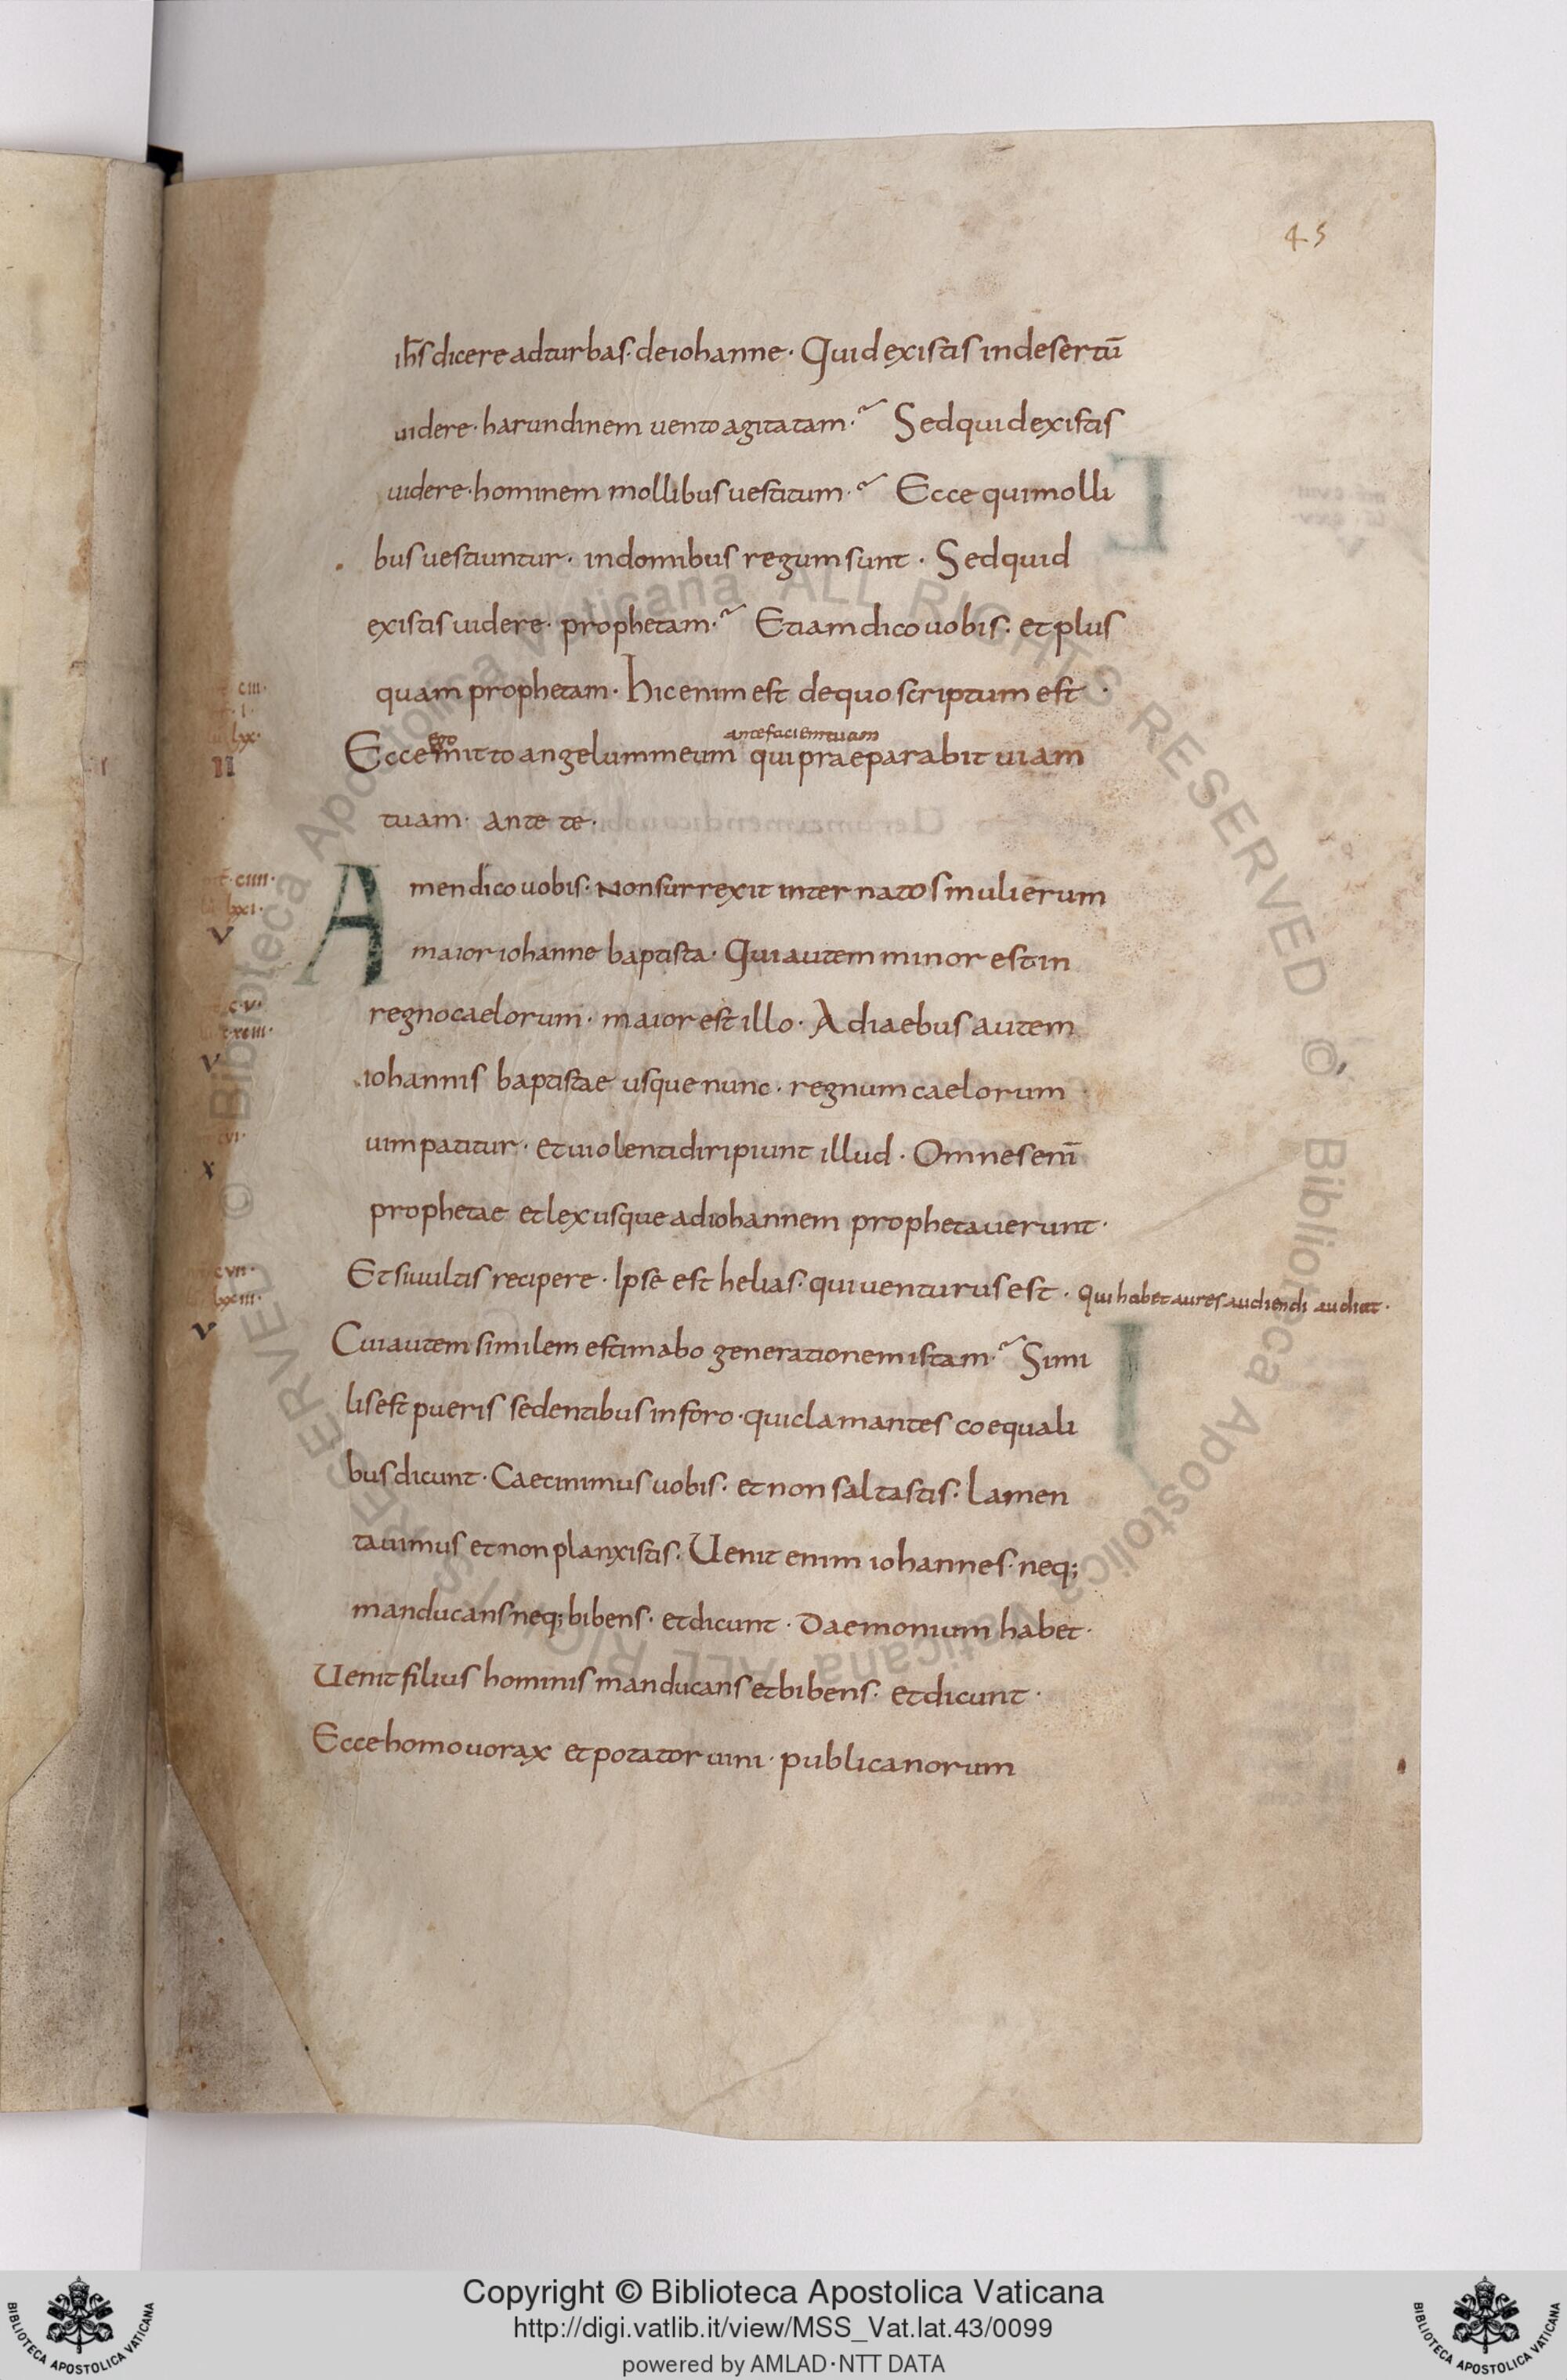 45
ihs dicere ad turbas · de iohanne · Quid existis in desertū
uidere · harundinem uento agitatam ·? Sed quid existis
uidere · hominem mollibus uestitum ·? Ecce qui molli
bus uestiuntur · in domibus regum sunt · Sed quid
existis uidere · prophetam ·? Etiam dico uobis · et plus
quam prophetam · hic enim est de quo scriptum est ·
ciii ·
ego
ante faciem tuam
Ecce mitto angelum meum qui praeparabit uiam
II
tuam · ante te ·
Amen dico uobis · Non surrexit inter natos mulierum
ciiii ·
lxxi ·
V
maior iohanne baptista · Qui autem minor est in
regno caelorum · maior est illo · A diaebus autem
V
iohannis baptistae usque nunc · regnum caelorum
uim patitur · et uiolenti diripiunt illud · Omnes enī
X
prophetae et lex usque ad iohannem prophetauerunt ·
Et si uultis recipere · Ipse est helias · qui uenturus est · Qui habet aures audiendi audiat ·
cvii ·
V
Cui autem similem estimabo generationem istam ·? Simi
lis est pueris sedentibus in foro · qui clamantes coequali
bus dicunt · Caecinimus uobis · et non saltastis · Lamen
tauimus et non planxistis · Uenit enim iohannes · neq;
manducans neq; bibens · et dicunt · Daemonium habet ·
Uenit filius hominis manducans et bibens · et dicunt ·
Ecce homo uorax et potator uini · publicanorum
© Biblioteca Apostolica Vaticana ALL RIGHTS RESERVED © Biblioteca Apostolica Vaticana ALL RIGHTS RESERVED
Copyright © Biblioteca Apostolica Vaticana
http://digi.vatlib.it/view/MSS_Vat.lat.43/0099
powered by AMLAD·NTT DATA
BIBLIOTECA APOSTOLICA VATICANA
BIBLIOTECA APOSTOLICA VATICANA